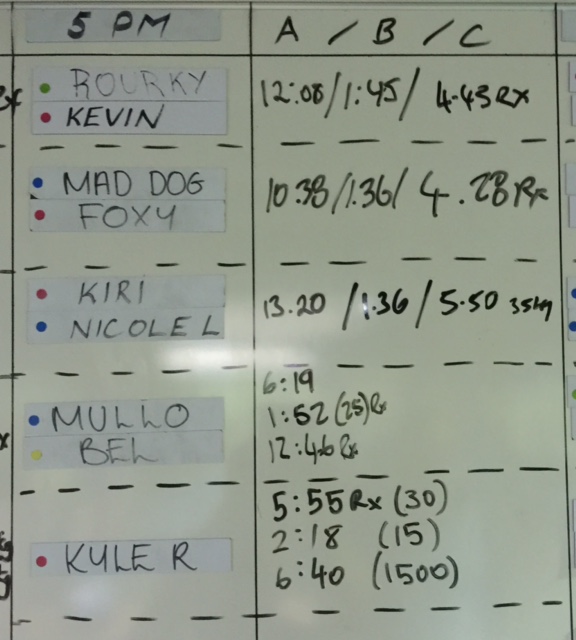 5 PM
A / B / C
ROURKY
KEVIN
12:08/1:45/ 4.43 Rx
MAD DOG
FOXY
10.38/1.36/ 4.28 Rx
KIRI
NICOLE L
13.20 /1.36 / 5.50 35kg
MULLO
BEL
6:19
1:52 (25) Rx
12:46 Rx
KYLE R
5:55 Rx (30)
2:18 (15)
6:40 (1500)